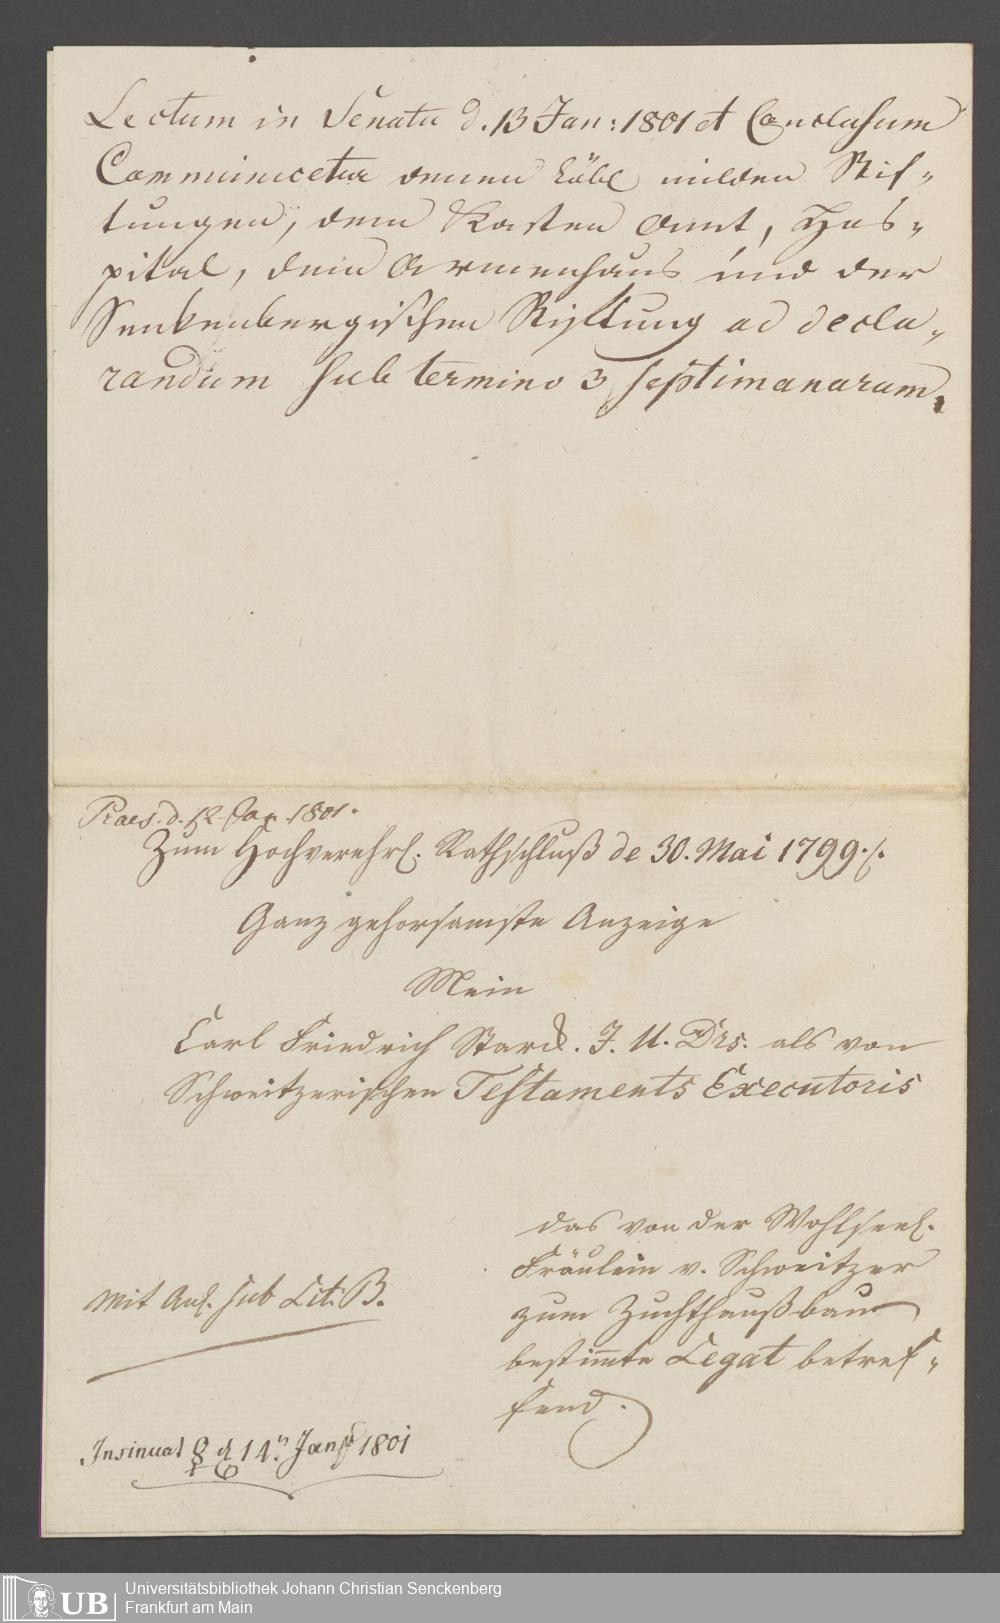 Lectum in Senatu d. 13 Jan: 1801 et Conclusum
Communicetur denen Löbl milden Stif„
tungen, dem Kasten Amt, Hos„
pital, dem Armenhaus und der
Senkenbergischen Stiftung ad decla„
randum sub termino 3 septimanarum.
Praes. d. 12. Jan. 1801.
Zum Hochverehrl. Rathschluß de 30. Mai 1799./.
Ganz gehorsamste Anzeige
Mein
Carl Friedrich Starck. J. U. Drs. als von
Schweitzerischen Testaments Executoris
das von der Wohlseel.
Fräulein v. Schweitzer
zum Zuchthaußbau
bestimte Legat betref„
fend.
Mit Anl. sub Lit: B.
Insinuat d 14n. Jan 1801
Universitätsbibliothek Johann Christian Senckenberg
Frankfurt am Main
UB